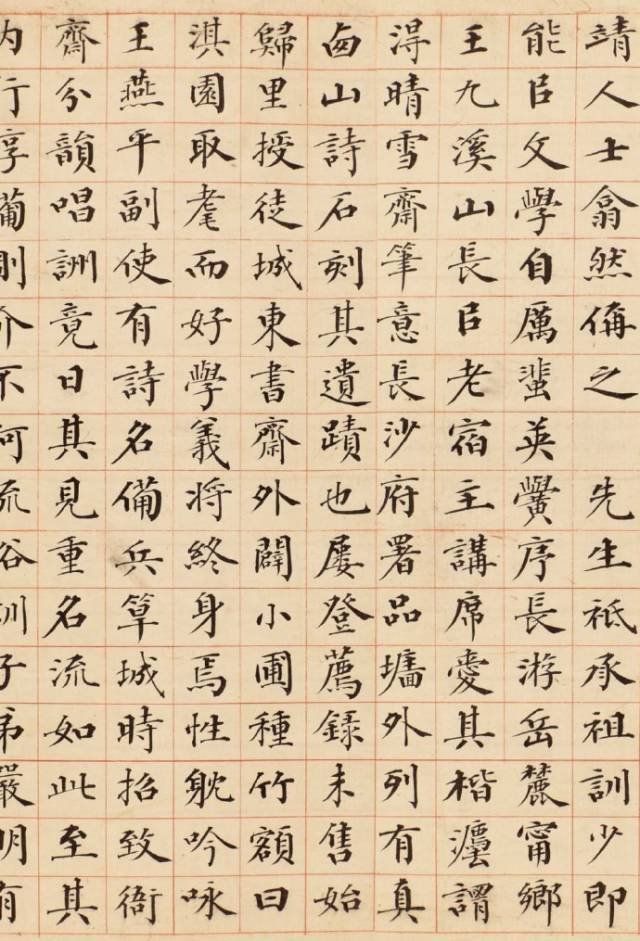 靖人士翕然偁之 先生祇承祖訓少即
能㠯文學自厲蜚英黌序長游岳麓甯鄉
王九溪山長㠯老宿主講席愛其楷灋謂
淂晴雪齋筆意長沙府署品墻外列有真
卥山詩石刻其遺蹟也屢登薦錄未售始
歸里授徒城東書齋外闢小圃種竹額曰
淇園取耄而好學義將終身焉性躭吟咏
王燕平副使有詩名備兵筸城時招致衙
齋分韻唱詶竟日其見重名流如此至其
內行介不阿流俗訓子弟嚴明有